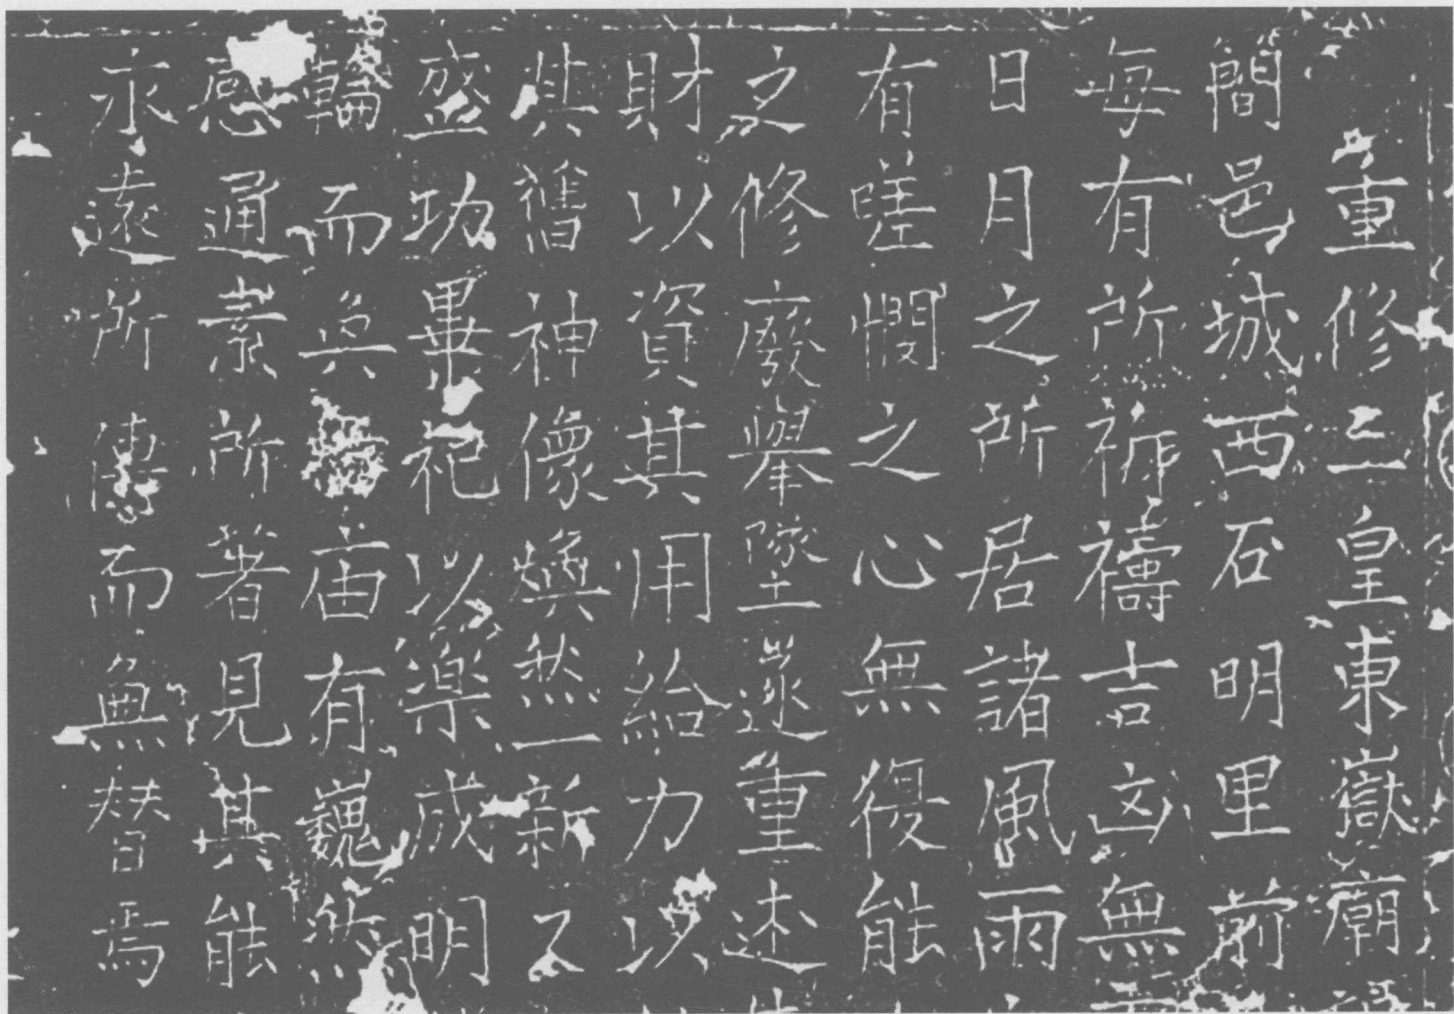 重修二皇東嶽廟
簡邑城西石明里前
每有所禱吉凶無
日月之所居諸風雨
有嗟憫之心無復能
之修廢舉墜遂重述
財以資其用給力以
其舊神像煥然一新又
盛功畢祀以樂成明
輪而奐庙有巍然
感通素所著見其能
永遠所傳而無替焉